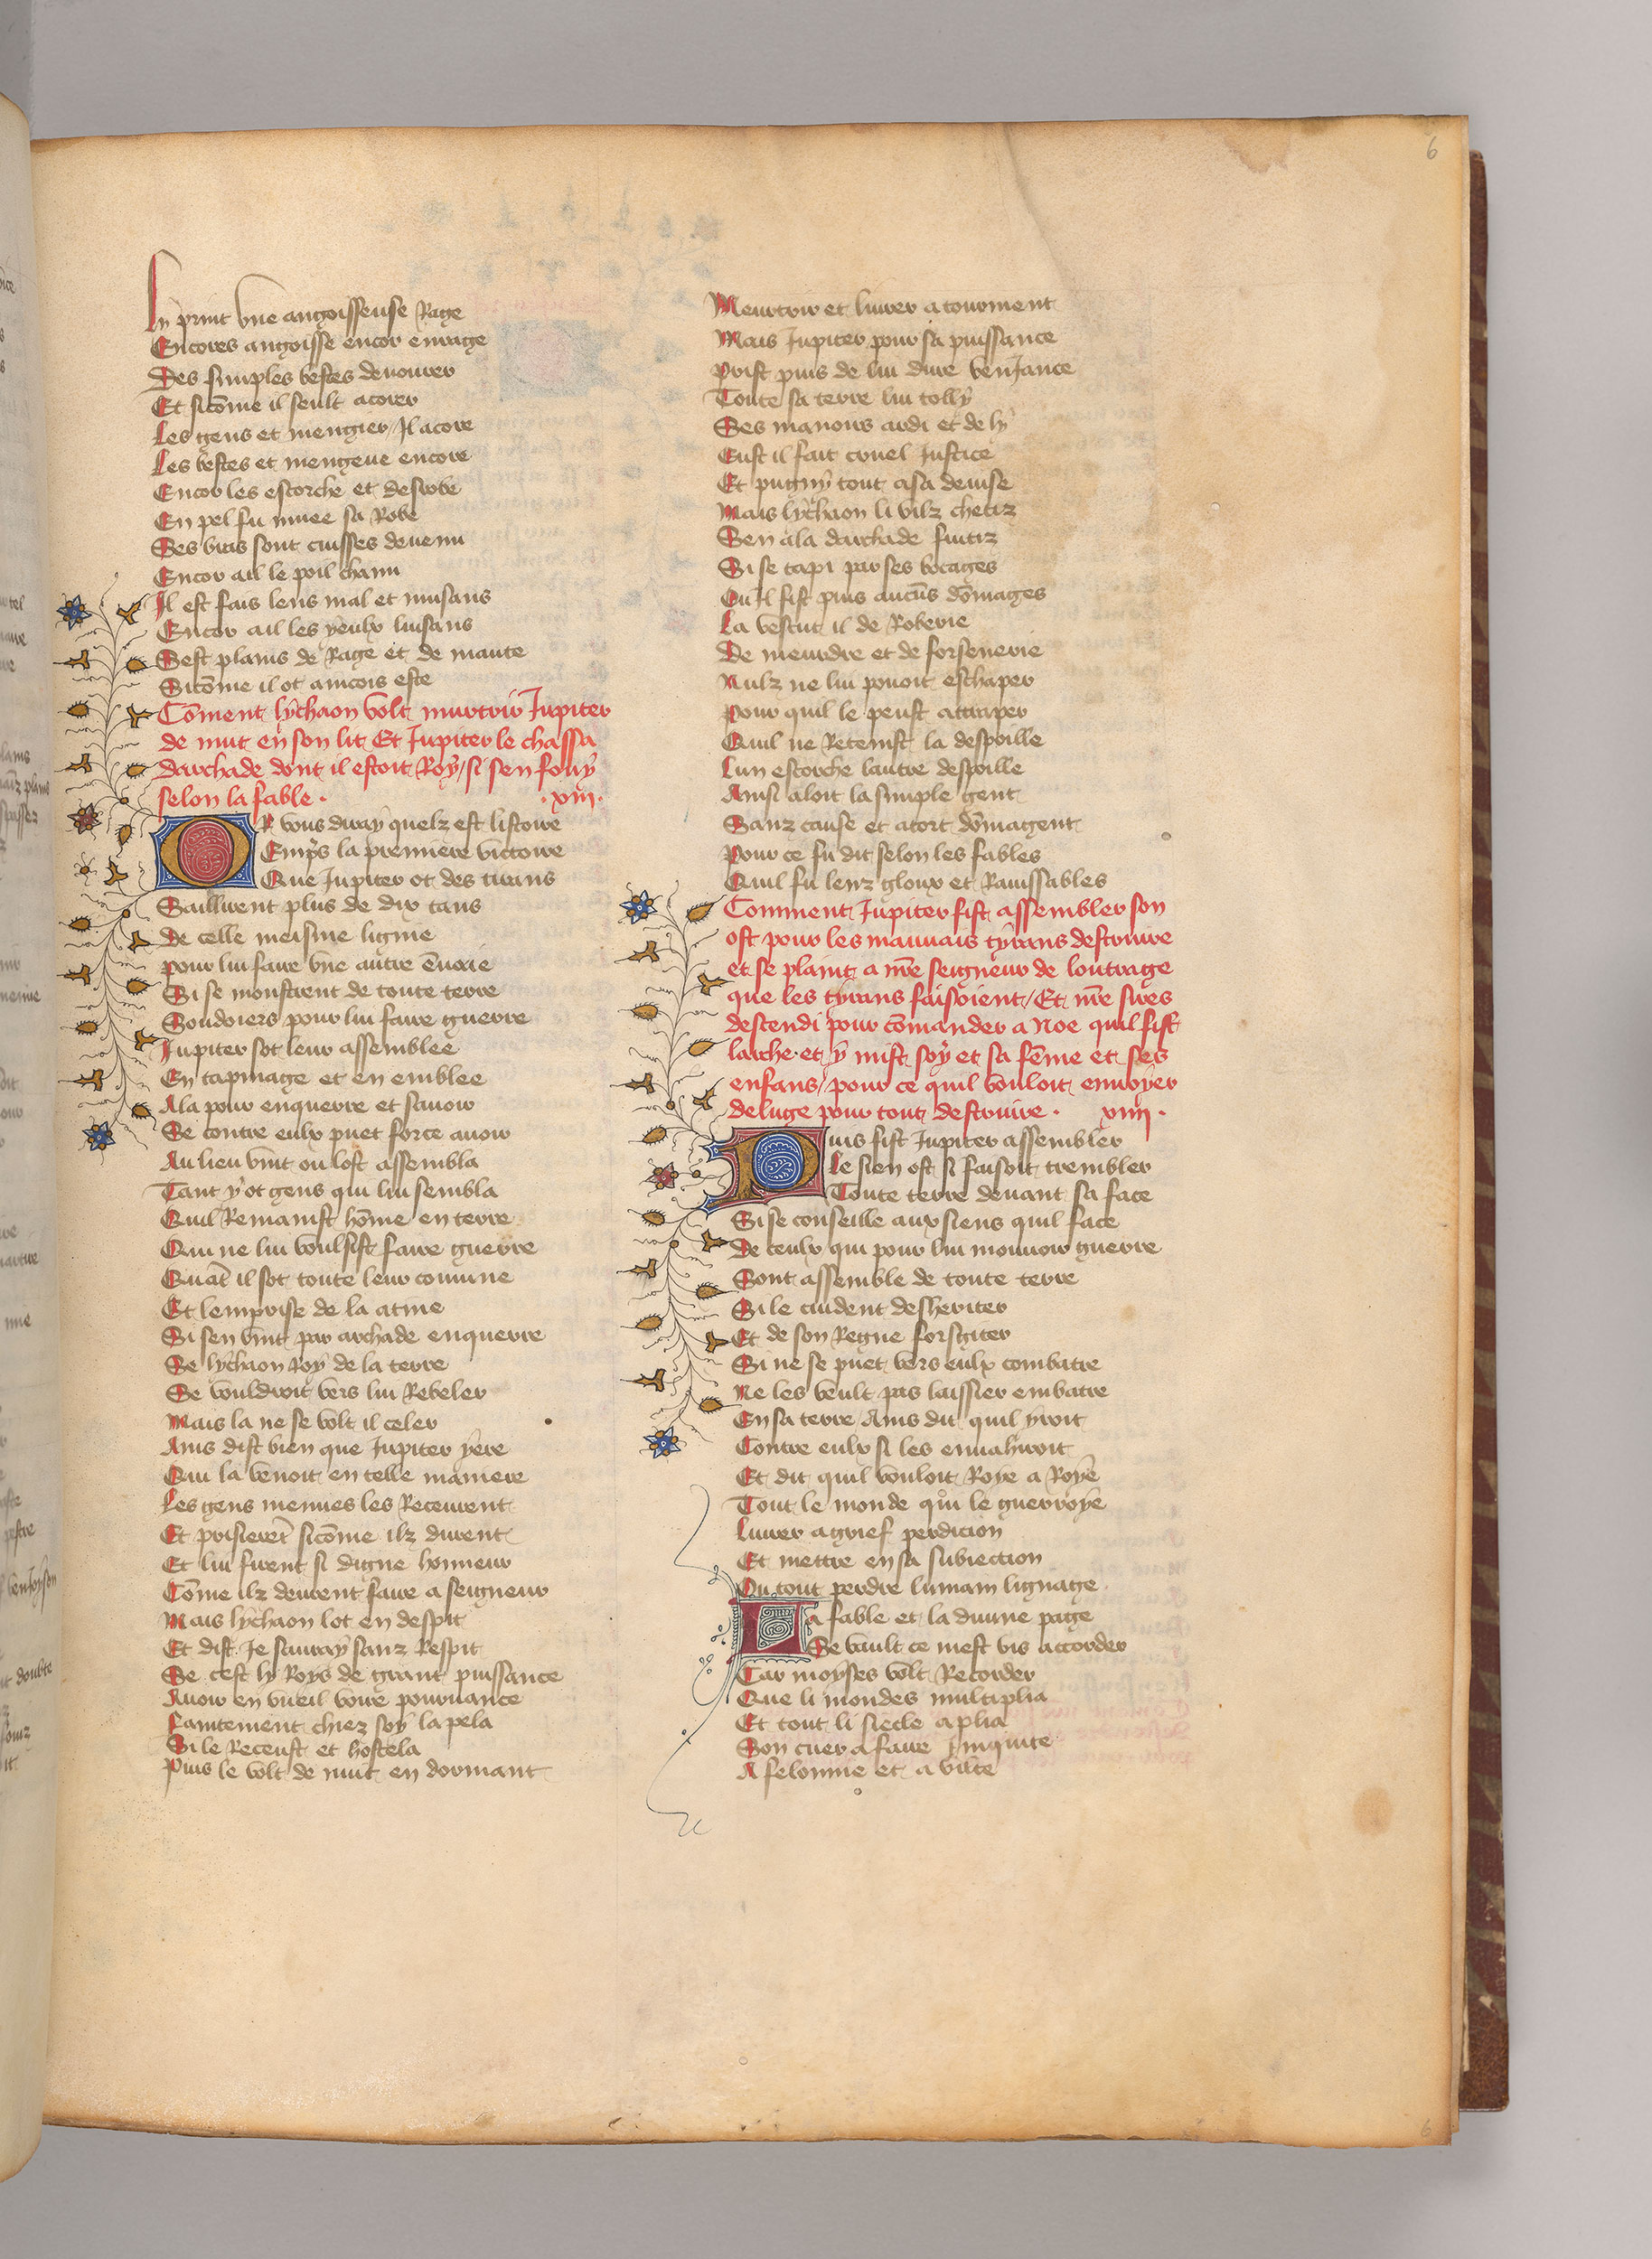 Ly print vne angoisseuse Rage
Encores angoisse encor enrage
Des simples bestes deuourer
Et sicōme il seult acorer
Les gens et mengier / Il acore
Les bestes et mengeue encore
Encor les escorche et desrobe
En pel fu muee sa Robe
Ses bras sont cuisses deuenu
Encor a il le poil chanu
Il est fais leus mal et musans
Encor a il les yeulx luisans
Sest plains de Rage et de maute
Sicōme il ot aincois este
Cōment lychaon volt murtrir Jupiter
de nuit en son lit Et Jupiter le chassa
darchade dont il estoit Roy / si sen fouy
selon la fable · · xiii ·
OR vous diray quelz est listoire
Emps la premiere victoire
Que Jupiter ot des tirans
Saillirent plus de dix tans
De celle meisme lignie
pour lui faire vne autre enuaie
Si se monstrent de toute terre
Soudoiers pour lui faire guerre
Jupiter sot leur assemblee
En tapinage et en emblee
Ala pour enquerre et sauoir
Se contre eulx puet force auoir
Au lieu vint ou lost assembla
Tant y ot gens qui lui sembla
Quil Remainst hōme en terre
Qui ne lui voulsist faire guerre
Quāt il sot toute leur comune
Et lemprise de la atine
Si sen vint par archade enquerre
Se lychaon Roy de la terre
Se vouldroit vers lui Rebeler
Mais la ne se volt il celer
Ains dist bien que Jupiter yere
Qui la venoit en telle maniere
Les gens menues les Receurent
Et prisierēt sicōme ilz durent
Et lui firent si digne honneur
Cōme ilz deurent faire a seigneur
Mais lychaon lot en despit
Et dist Je sauray sanz Respit
Se cest ly Roys de grant puissance
Auoir en vueil voire prouuance
Faintement chiez soy lapela
Si le Receust et hostela
Puis le volt de nuit en dormant
Meurtrir et liurer a tourment
Mais Jupiter pour sa puissance
Prist puis de lui dure venJance
Toute sa terre lui tolly
Ses manoirs ardi et de ly
Eust il fait cruel Justice
Et pugny tout a sa deuise
Mais lychaon li vilz chetiz
Sen ala darchade fuitiz
Si se tapi par ses bocages
Ou Il fist puis aucūs dōmages
La vescut il de Roberie
De meurdre et de forsenerie
Nulz ne lui pouoit eschaper
Pour quil le peust attraper
Quil ne Retenist la despoille
Lun escorche lautre despoille
Ainsi aloit la simple gent
Sanz cause et a tort dōmagent
Pour ce fu dit selon les fables
Quil fu leuz gloux et Rauissables
Comment Jupiter fist assembler son
ost pour les mauuais tyrans destruire
et se plaint a nr̄e seigneur de loutrage
que les tyrans faisoient / Et nr̄e sires
descendi pour cōmander a Noe quil fist
larche · et y mist soy et sa fēme et ses
enfans / pour ce quil vouloit enuoyer
deluge pour tout destruire · xiiii ·
Puis fist Jupiter assembler
Le sien ost si faisoit trembler
Toute terre deuant sa face
Si se conseille aux siens quil face
De ceulx qui pour lui mouuoir guerre
Sont assemble de toute terre
Si le cuident desheriter
Et de son Regne forsgiter
Si ne se puet vers eulx combatre
Ne les veult pas laissier embatre
En sa terre Ains dit quil yroit
Contre eulx si les enuahiroit
Et dit quil vouloit Roye a Roye
Tout le monde qui le guerroye
Liurer a grief perdicion
Et mettre en sa subiection
Ou tout perdre lumain lignage
La fable et la diuine page
Se vault ce mest vis accorder
Car moyses volt Recorder
Que li mondes multiplia
Et tout li siecle aplia
Son cuer a faire Iniquite
A felonnie et a vilte
6
6